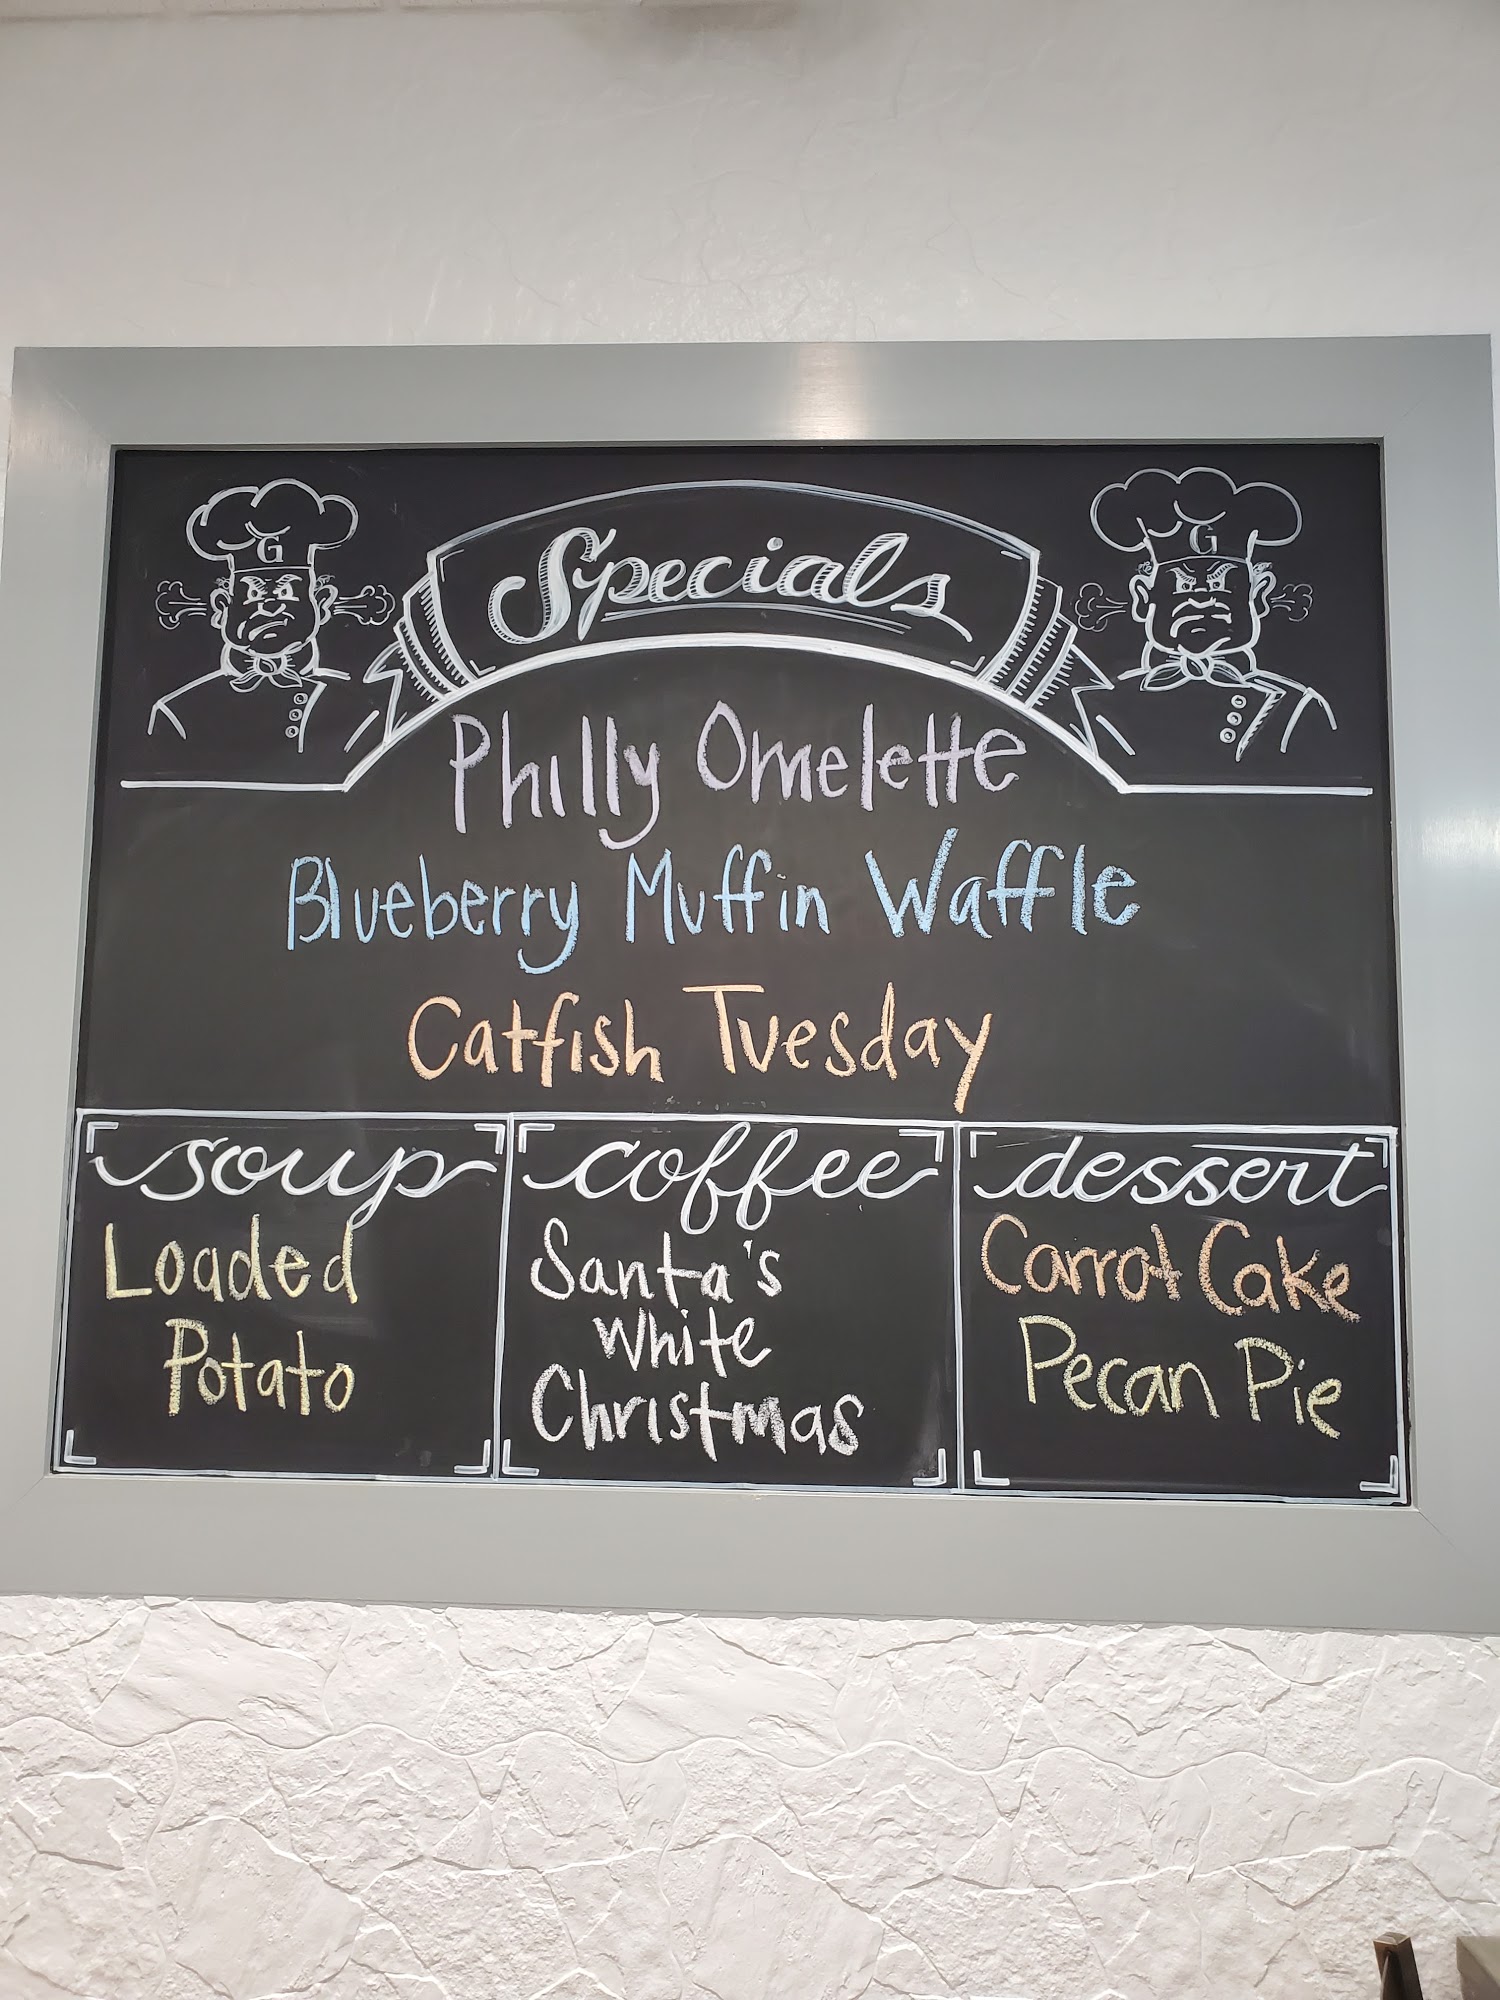 G
G
Specials
Philly Omelette
Blueberry Muffin Waffle
Catfish Tuesday
soup
Loaded
Potato
coffee
Santa's
White
Christmas
dessert
Carrot Cake
Pecan Pie